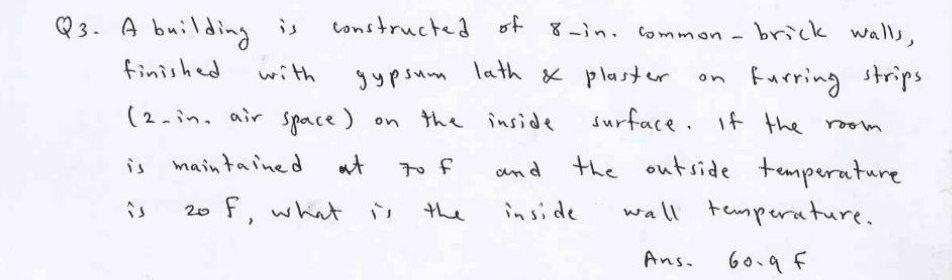 Q3. A building is constructed of 8-in. common-brick walls,
finished with gypsum lath & plaster on furring strips
(2-in. air space) on the inside surface. If the room
is maintained at 70 F and the outside temperature
is 20 F, what is the inside wall temperature.
Ans. 60.9 F